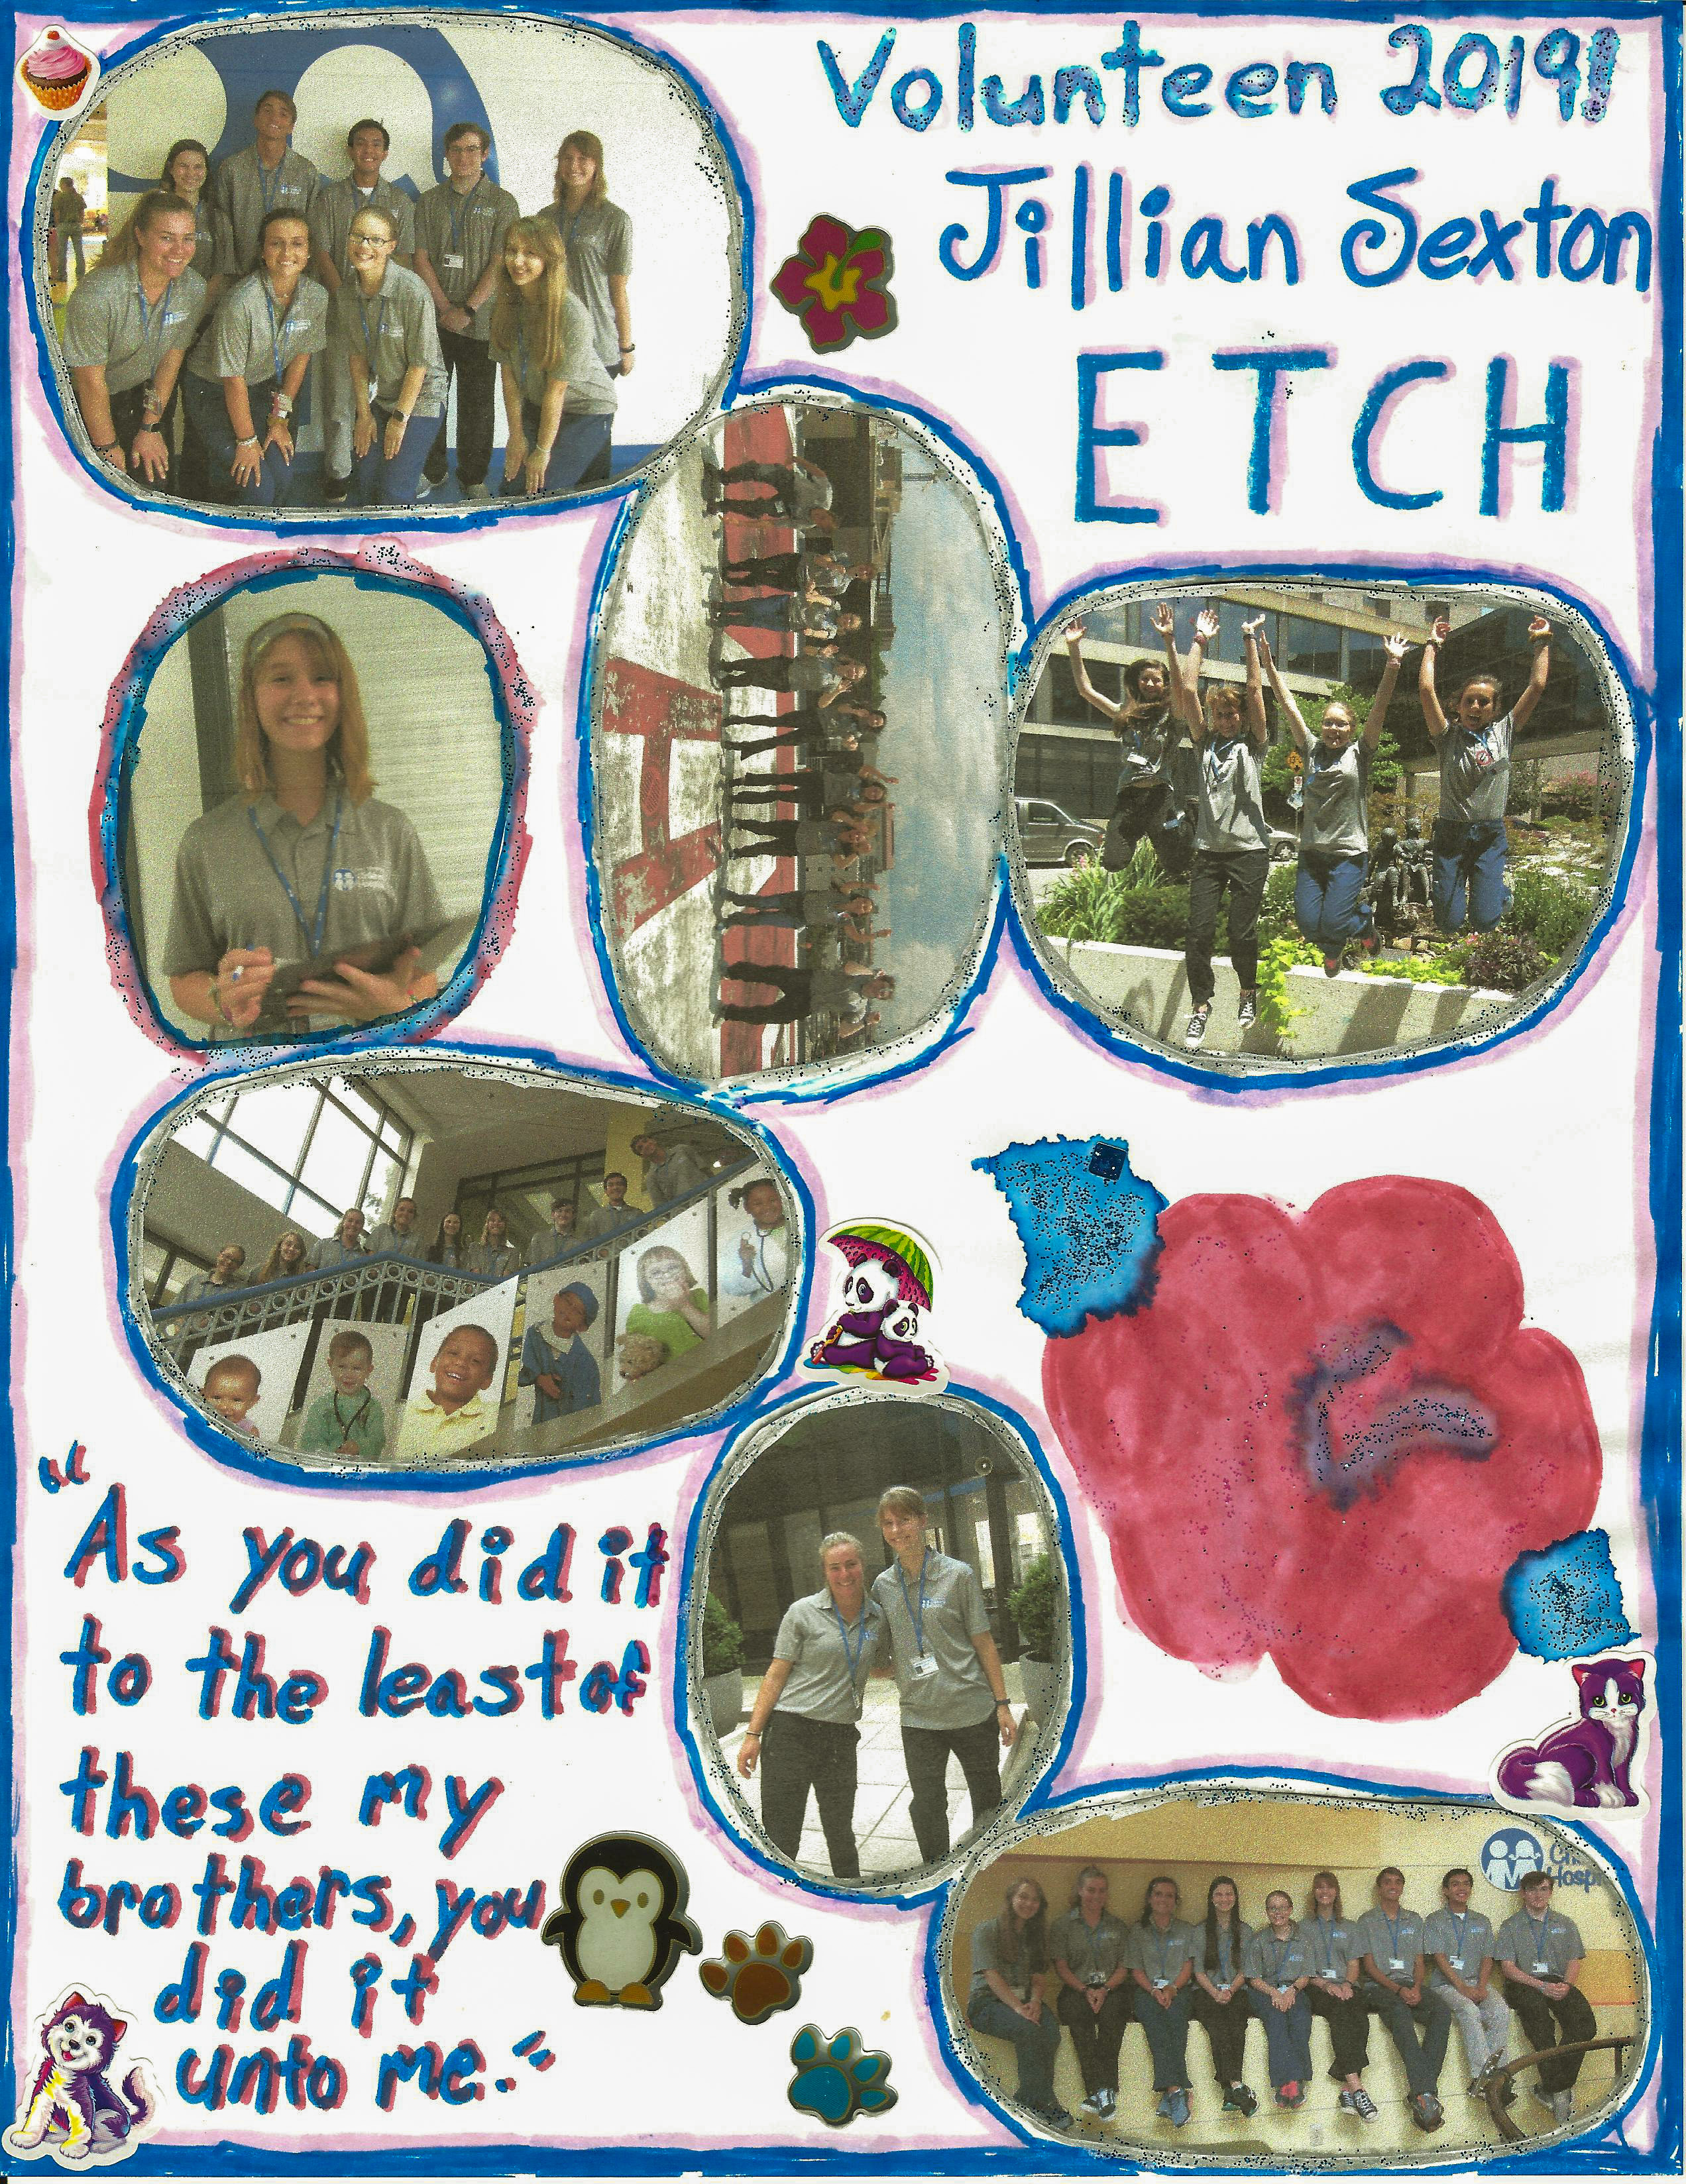 Volunteen 2019!
Jillian Sexton
ETCH
"As you did it
to the least of
these my
brothers, you
did it
unto me."